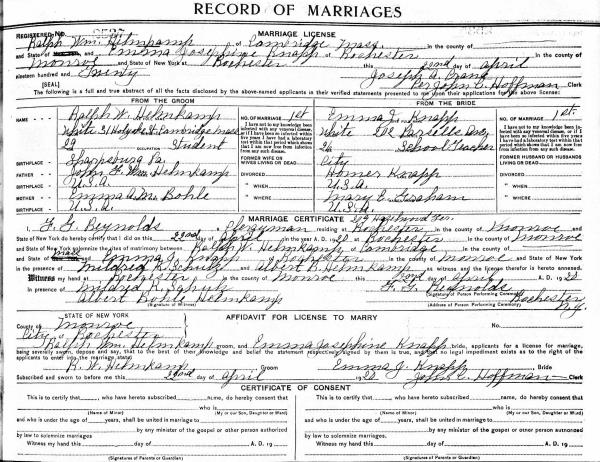 RECORD OF MARRIAGES
REGISTERED No. MARRIAGE LICENSE
Ralph Wm. Helmkamp of Cambridge Mass in the county of
and State of and Emma Josephine Knapp of Rochester in the county of
Monroe and State of New York at Rochester this 22nd day of April
nineteen hundred and Twenty Joseph A. Crane
[SEAL] Per John C. Hoffman Clerk
The following is a full and true abstract of all the facts disclosed by the above-named applicants in their verified statements presented to me upon their applications for the above license:
FROM THE GROOM FROM THE BRIDE
NAME Ralph W. Helmkamp No. 1st Emma J. Knapp 1st
White Cambridge Mass White 202 Parsells Ave
29 OCCUPATION Student 26 School Teacher
I have not to my knowledge been infected with any venereal disease, or if I have been so infected within five years I have had a laboratory test within that period which shows that I am now free from infection from any such disease.
I have not to my knowledge been infected with any venereal disease, or if I have been so infected within five years I have had a laboratory test within that period which shows that I am now free from infection from any such disease.
BIRTHPLACE Sharpsburg Pa. FORMER WIFE OR WIVES LIVING OR DEAD City FORMER HUSBAND OR HUSBANDS LIVING OR DEAD
FATHER John G. Wm. Helmkamp DIVORCED Homer Knapp DIVORCED
BIRTHPLACE U.S.A. " WHEN U.S.A. " WHEN
MOTHER Emma A.M. Bohle " WHERE Mary E. Graham " WHERE
BIRTHPLACE U.S.A. U.S.A.
MARRIAGE CERTIFICATE
I, F. G. Reynolds a Clergyman residing at Rochester in the county of Monroe and
State of New York do hereby certify that I did on this 22nd day of April in the year A. D. 1920 at Rochester in the county of Monroe
and State of New York solemnize the rites of matrimony between Ralph W. Helmkamp of Cambridge in the county of
and State of Mass and Emma J. Knapp of Rochester in the county of Monroe and State of New York
in the presence of Mildred K. Schulz and Albert B. Helmkamp as witness and the license therefor is hereto annexed.
Witness my hand at Rochester in the county of Monroe this 22nd day of April A. D. 1920
In presence of Mildred K. Schulz F. G. Reynolds
(Signature of Person Performing Ceremony)
Albert Bohle Helmkamp Rochester N.Y.
(Signature of Witness) (Address of Person Performing Ceremony)
STATE OF NEW YORK AFFIDAVIT FOR LICENSE TO MARRY No.
County of Monroe
City of Rochester
Ralph Wm. Helmkamp groom, and Emma Josephine Knapp bride, applicants for a license for marriage,
being severally sworn, depose and say, that to the best of their knowledge and belief the statement respectively signed by them is true, and that no legal impediment exists as to the right of the
applicants to enter into the marriage state.
R. W. Helmkamp Groom Emma J. Knapp Bride
Subscribed and sworn to before me this 22nd day of April 1920 John C. Hoffman Clerk
CERTIFICATE OF CONSENT
This is to certify, that who have hereby consented, do hereby consent that
This is to certify, that who have hereby consented, do hereby consent that
who is who is
(Name of Minor) (My or our Son, Daughter or Ward) (Name of Minor) (My or our Son, Daughter or Ward)
and who is under the age of years, shall be united in marriage to
and who is under the age of years, shall be united in marriage to
by any minister of the gospel or other person authorized
by any minister of the gospel or other person authorized
by law to solemnize marriages
by law to solemnize marriages
Witness my hand this day of A. D. 19
Witness my hand this day of A. D. 19
(Signatures of Parents or Guardian) (Signatures of Parents or Guardian)